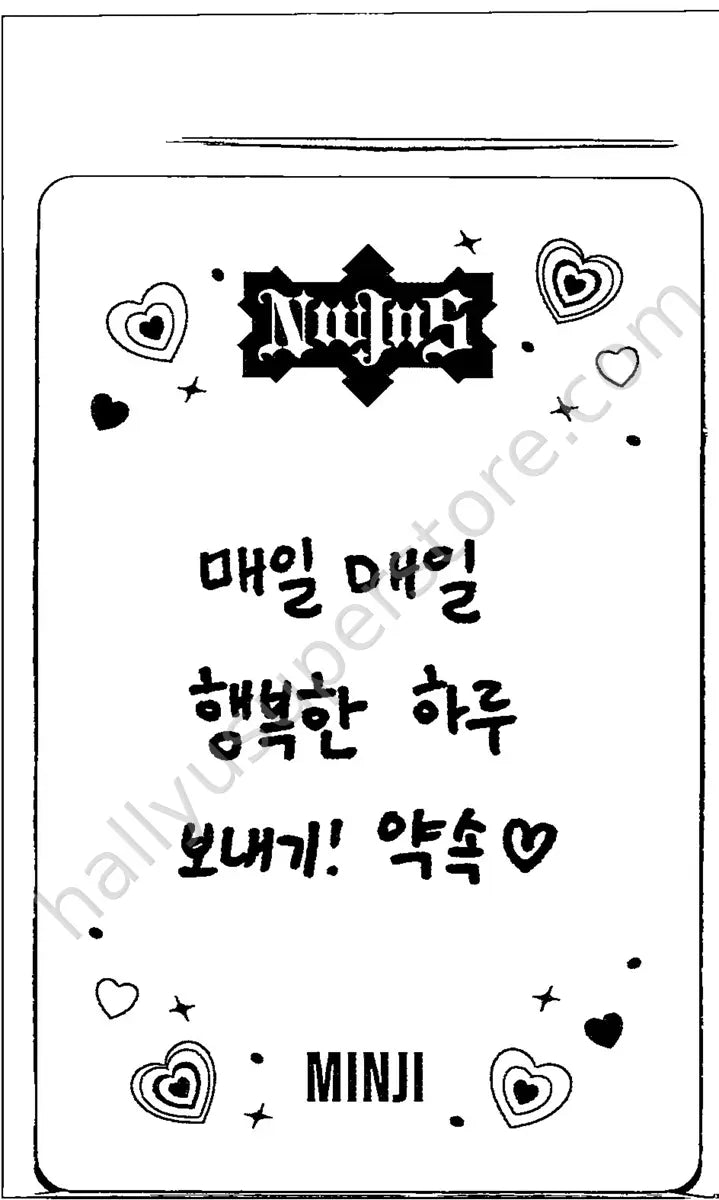 NwJnS
매일 매일
행복한 하루
보내기! 약속♡
MINJI
hallyusuperstore.com